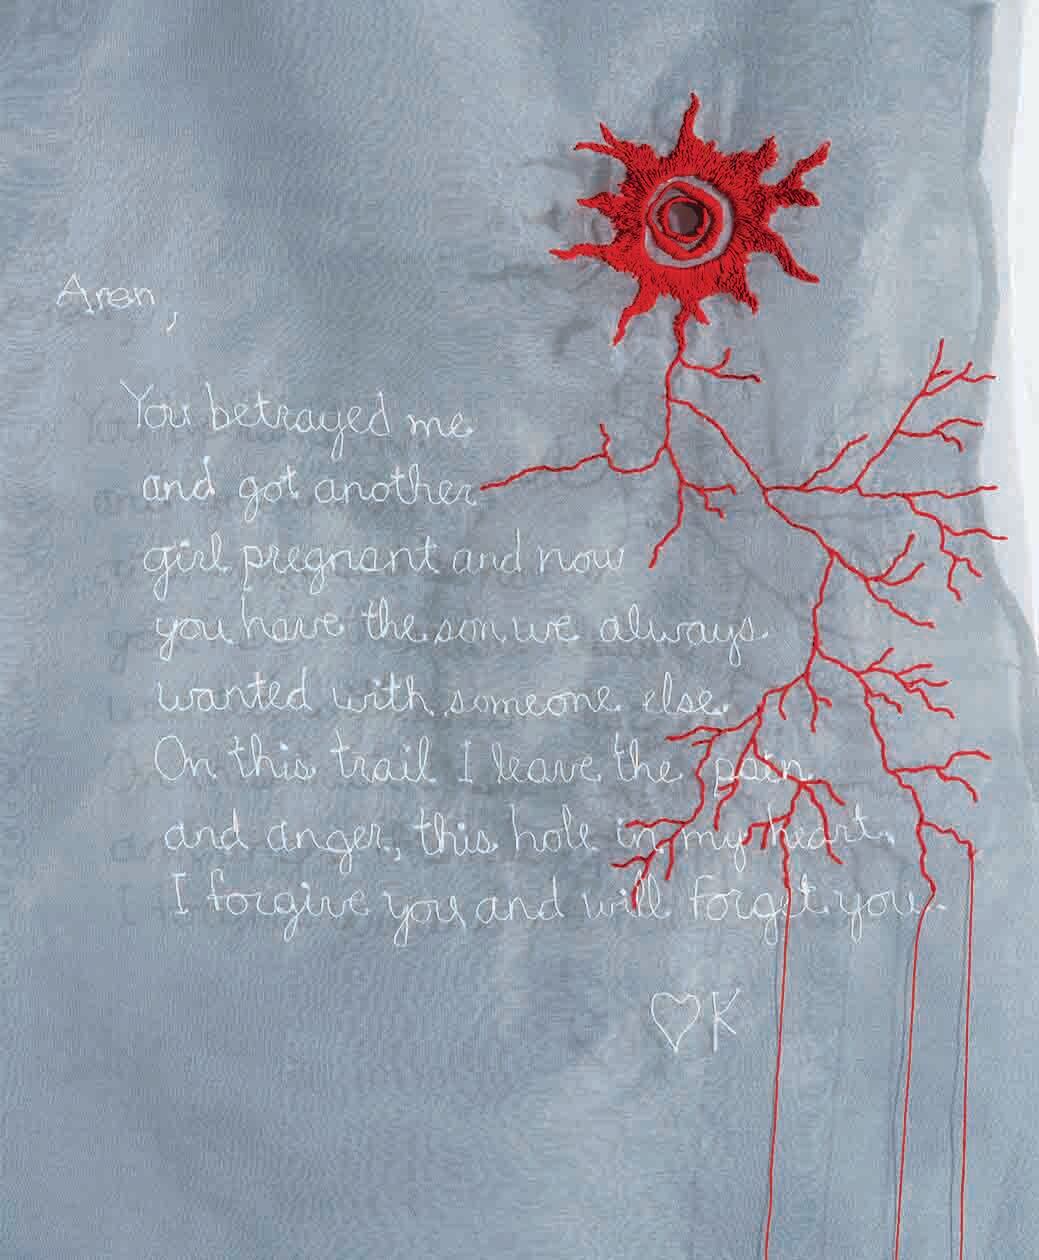 Aren,
You betrayed me
and got another
girl pregnant and now
you have the son we always
wanted with someone else.
On this trail I leave the pain
and anger, this hole in my heart.
I forgive you and will forget you.
♡K